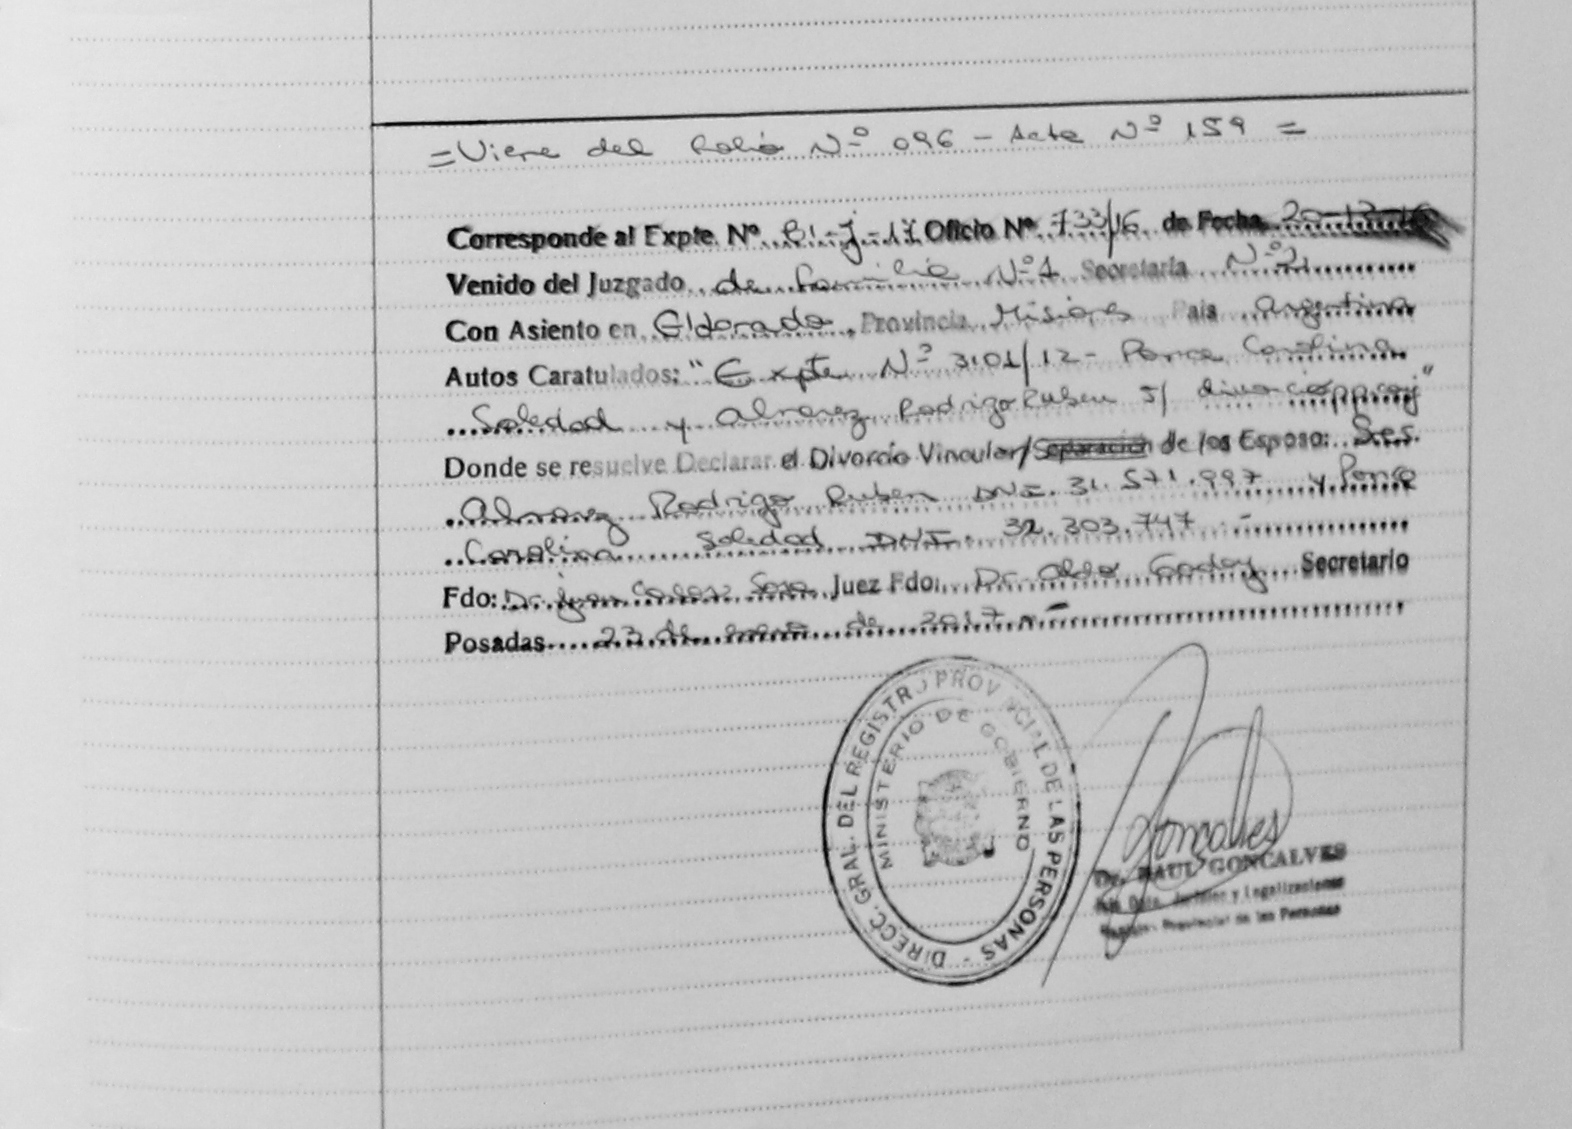 =Viene del Folio Nº 096 - Acta Nº 159 =
Corresponde al Expte. Nº 81-J-17 Oficio Nº 733/16 de Fecha 20-12-16
Venido del Juzgado de Familia Nº1 Secretaria Nº2
Con Asiento en Eldorado, Provincia Misiones Pais Argentina
Autos Caratulados: "Expte Nº 3101/12- Ponce Carolina
Soledad y Alvarez Rodrigo Ruben S/ divorcio
Donde se resuelve Declarar el Divorcio Vincular/Separacion de los Esposo: Sres.
Alvarez Rodrigo Ruben DNI. 31.571.997 y Ponce
Carolina Soledad DNI. 32.303.747 -
Fdo: Dr. Juan Carlos Sosa Juez Fdo: Dr. Aldo Godoy Secretario
Posadas 23 de enero de 2017 -
DIRECC. GRAL. DEL REGISTRO PROVINCIAL DE LAS PERSONAS -
MINISTERIO DE GOBIERNO
Goncalves
Dr. RAUL GONCALVES
Jurídico y Legalizaciones
Registro Provincial de las Personas